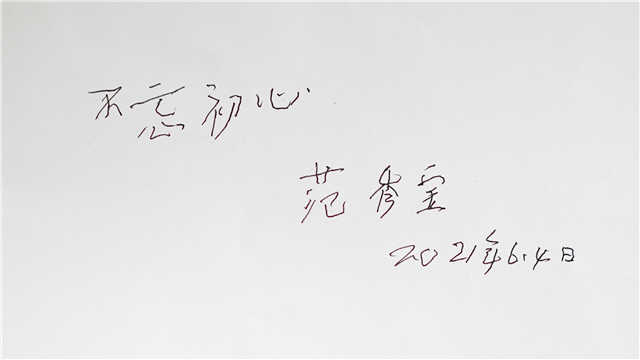 不忘初心
范秀云
2021年6.4日